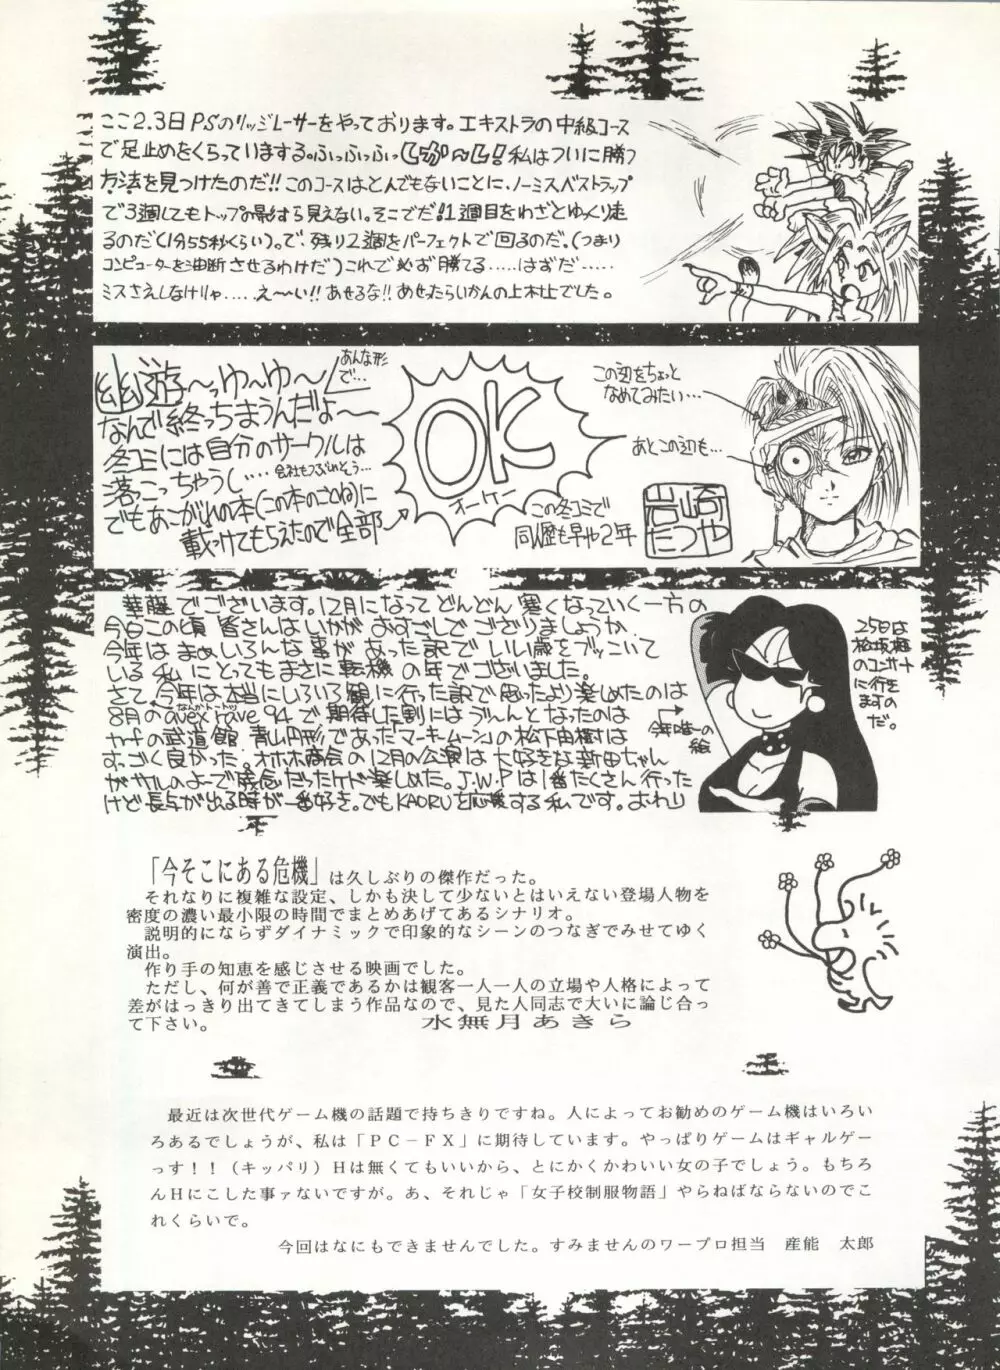 ここ2.3日PSのリッジレーサーをやっております。エキストラの中級コース
で足止めをくらっていまする。ふっふっふっしか〜し!私はついに勝つ
方法を見つけたのだ!!このコースはとんでもないことに、ノーミスベストラップ
で3週してもトップの影すら見えない。そこでだ!1週目をわざとゆっくり走
るのだ(1分55秒くらい)。で、残り2週をパーフェクトで回るのだ。(つまり
コンピューターを油断させるわけだ)これで必ず勝てる.....はずだ.....
ミスさえしなけりゃ.....え〜い!!あせるな!!あせったらいかんの上木止でした。
幽遊〜っゆ〜ゆ〜
あんな形
で...
なんで終っちまうんだよ〜
冬コミには自分のサークルは
落っこっちゃうし....会社もつぶれそう...
でもあこがれの本(この本のことね)に
載っけてもらえたので全部→
OK
オーケー
この辺をちょっと
なめてみたい...
あとこの辺も...
この冬コミで
同人歴も早や2年
岩崎
たつや
華麗でございます。12月になってどんどん寒くなっていく一方の
今日この頃皆さんはいかがおすごしでござりましょうか。
今年はまぁいろんな事があった訳でいい歳をブッこいて
いる私にとってもまさに転機の年でございました。
さて、今年は本当にいろいろ観に行った訳で思ったより楽しめたのは
8月のavex rave '94で期待した割にはう〜んとなったのは
なんかトートツ
の武道館 青山円形であった「マーキームーン」の松下由樹は
すっごく良かった。オホホ商会の12月の公演は大好きな新田ちゃん
がガヤルのよーで残念だったケド楽しめた。J.W.Pは1番たくさん行った
けど長与が出る時が一番好き。でもKAORUを応援する私です。おわり
今年唯一の
絵
25日は
松坂樹
のコンサート
に行き
ますの
だ。
「今そこにある危機」は久しぶりの傑作だった。
それなりに複雑な設定、しかも決して少ないとはいえない登場人物を
密度の濃い最小限の時間でまとめあげてあるシナリオ。
説明的にならずダイナミックで印象的なシーンのつなぎでみせてゆく
演出。
作り手の知恵を感じさせる映画でした。
ただし、何が善で正義であるかは観客一人一人の立場や人格によって
差がはっきり出てきてしまう作品なので、見た人同志で大いに論じ合っ
て下さい。
水無月あきら
最近は次世代ゲーム機の話題で持ちきりですね。人によってお勧めのゲーム機はいろい
ろあるでしょうが、私は「PC−FX」に期待しています。やっぱりゲームはギャルゲー
っす!!(キッパリ)Hは無くてもいいから、とにかくかわいい女の子でしょう。もちろ
んHにこした事ァないですが。あ、それじゃ「女子校制服物語」やらねばならないのでこ
れくらいで。
今回はなにもできませんでした。すみませんのワープロ担当 産能 太郎